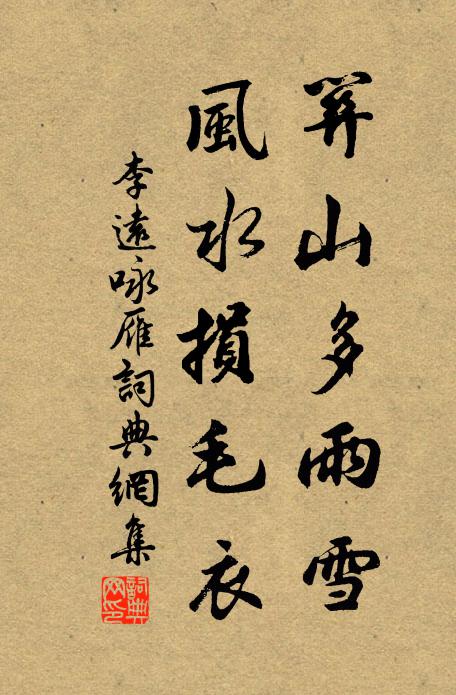 關山多雨雪
風水損毛衣
李遠咏雁詞典網集
詞典
网印